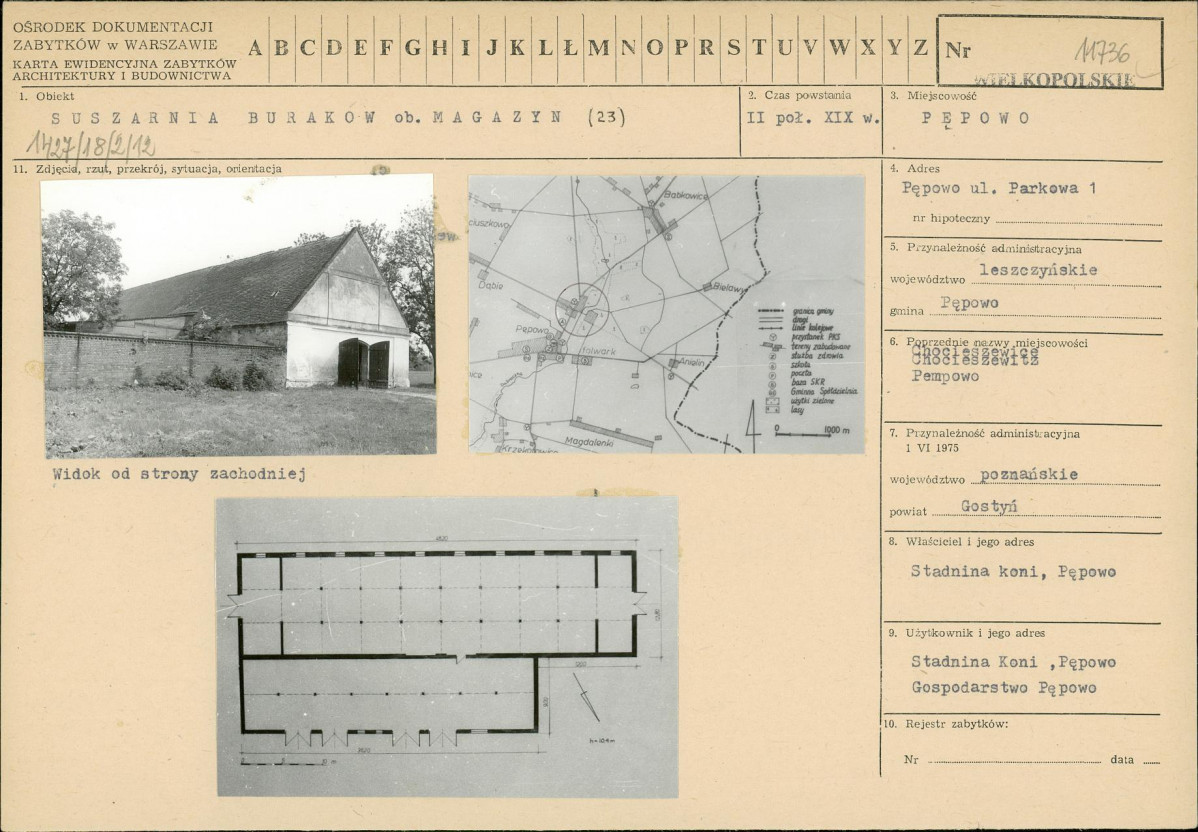 OŚRODEK DOKUMENTACJI
ZABYTKÓW w WARSZAWIE
KARTA EWIDENCYJNA ZABYTKÓW
ARCHITEKTURY I BUDOWNICTWA
A B C D E F G H I J K L Ł M N O P R S T U V W X Y Z
Nr 11736
WIELKOPOLSKIE
1. Obiekt
SUSZARNIA BURAKÓW ob. MAGAZYN (23)
1427/18/2/12
2. Czas powstania
II poł. XIX w.
3. Miejscowość
PĘPOWO
11. Zdjęcia, rzut, przekrój, sytuacja, orientacja
Babkowice
ciuszkowo
Dąbie
Bielawy
Pępowo
folwark
Anielin
Magdalenki
granica gminy
drogi
linie kolejowe
przystanek PKS
tereny zabudowane
służba zdrowia
szkoła
poczta
baza SKR
Gminna Spółdzielnia
użytki zielone
lasy
0 1000 m
Widok od strony zachodniej
h=10,4m
4. Adres
Pępowo ul. Parkowa 1
nr hipoteczny
5. Przynależność administracyjna
województwo leszczyńskie
gmina Pępowo
6. Poprzednie nazwy miejscowości
Chocieszewice
Chocieszewitz
Pempowo
7. Przynależność administracyjna
1 VI 1975
województwo poznańskie
powiat Gostyń
8. Właściciel i jego adres
Stadnina koni, Pępowo
9. Użytkownik i jego adres
Stadnina Koni ,Pępowo
Gospodarstwo Pępowo
10. Rejestr zabytków:
Nr data